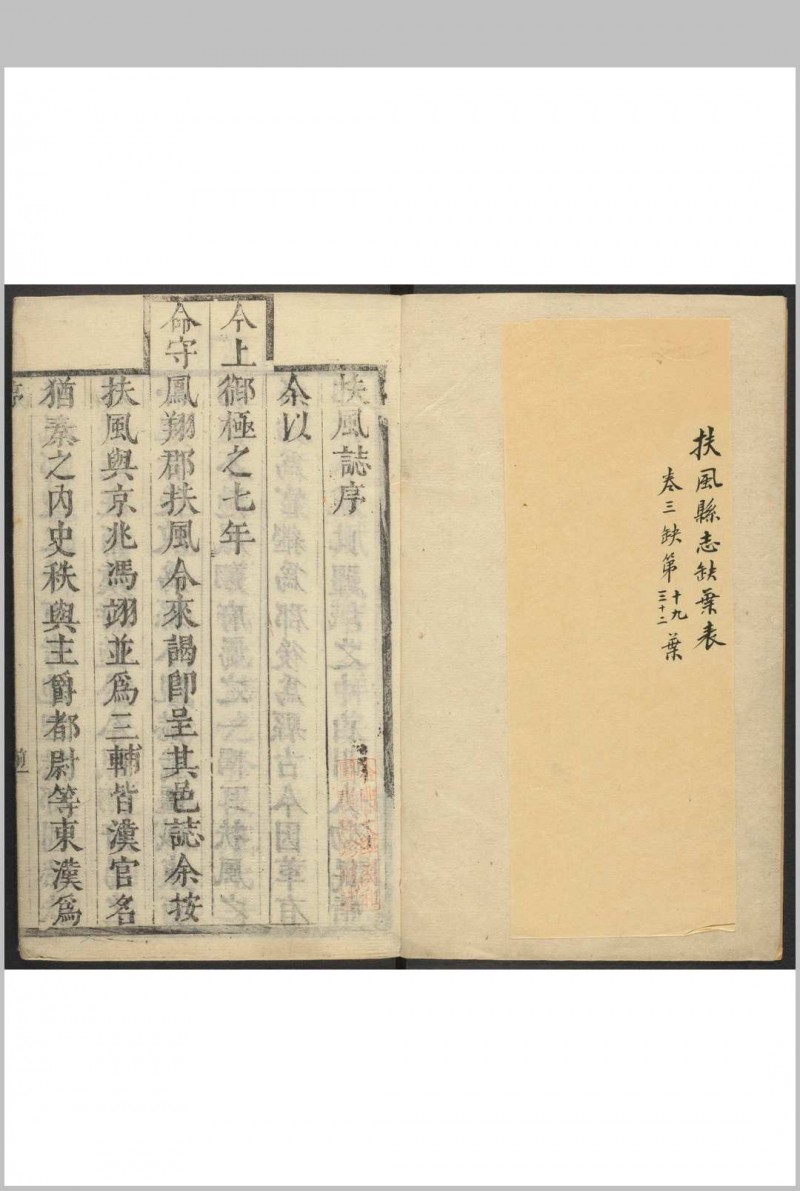 扶風縣志缺葉表
卷三缺第十九三十二葉
扶風誌序
余以
今上御極之七年
命守鳳翔郡扶風令來謁卽呈其邑誌余按
扶風與京兆馮翊並爲三輔皆漢官名
猶秦之內史秩與主爵都尉等東漢爲
序